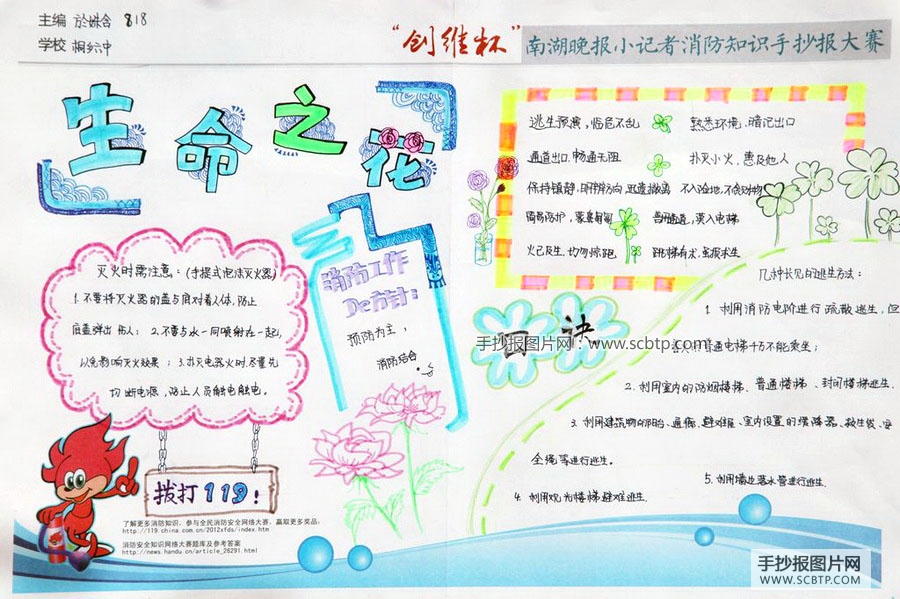 主编 於姝含 818
学校 桐六中
“创维杯”南湖晚报小记者消防知识手抄报大赛
生命之花
灭火时需注意：(手提式泡沫灭火器)
1.不要将灭火器的盖与底对着人体，防止
底盖弹出伤人；2.不要与水一同喷射在一起，
以免影响灭火效果；3.扑灭电器火时，尽量先
切断电源，防止人员触电触电。
拨打119！
了解更多消防知识，参与全民消防安全网络大赛，赢取更多奖品：
http://119.china.com.cn/2012xfds/index.htm
消防安全知识网络大赛题库及参考答案
http://news.handu.cn/article_26291.html
消防工作
De方针：
预防为主，
消防结合
逃生预演，临危不乱 熟悉环境，暗记出口
通道出口，畅通无阻 扑灭小火，惠及他人
保持镇静，明辨方向，迅速撤离 不入险地，不贪财物
简易防护，蒙鼻匍匐 善用通道，莫入电梯
火已及生，切勿惊跑 跳楼有术，虽损求生
口诀
手抄报图片网：www.scbtp.com
几种常见的逃生方法：
1.利用消防电阶进行疏散逃生，但
普通电梯千万不能乘坐；
2.利用室内的防烟楼梯、普通楼梯、封闭楼梯逃生.
3.利用建筑物的阳台、通廊、避难层、室内设置的缓降器、救生袋、安
全绳等进行逃生。
4.利用观光楼梯避难逃生.
5.利用墙边落水管进行逃生.
手抄报图片网
WWW.SCBTP.COM